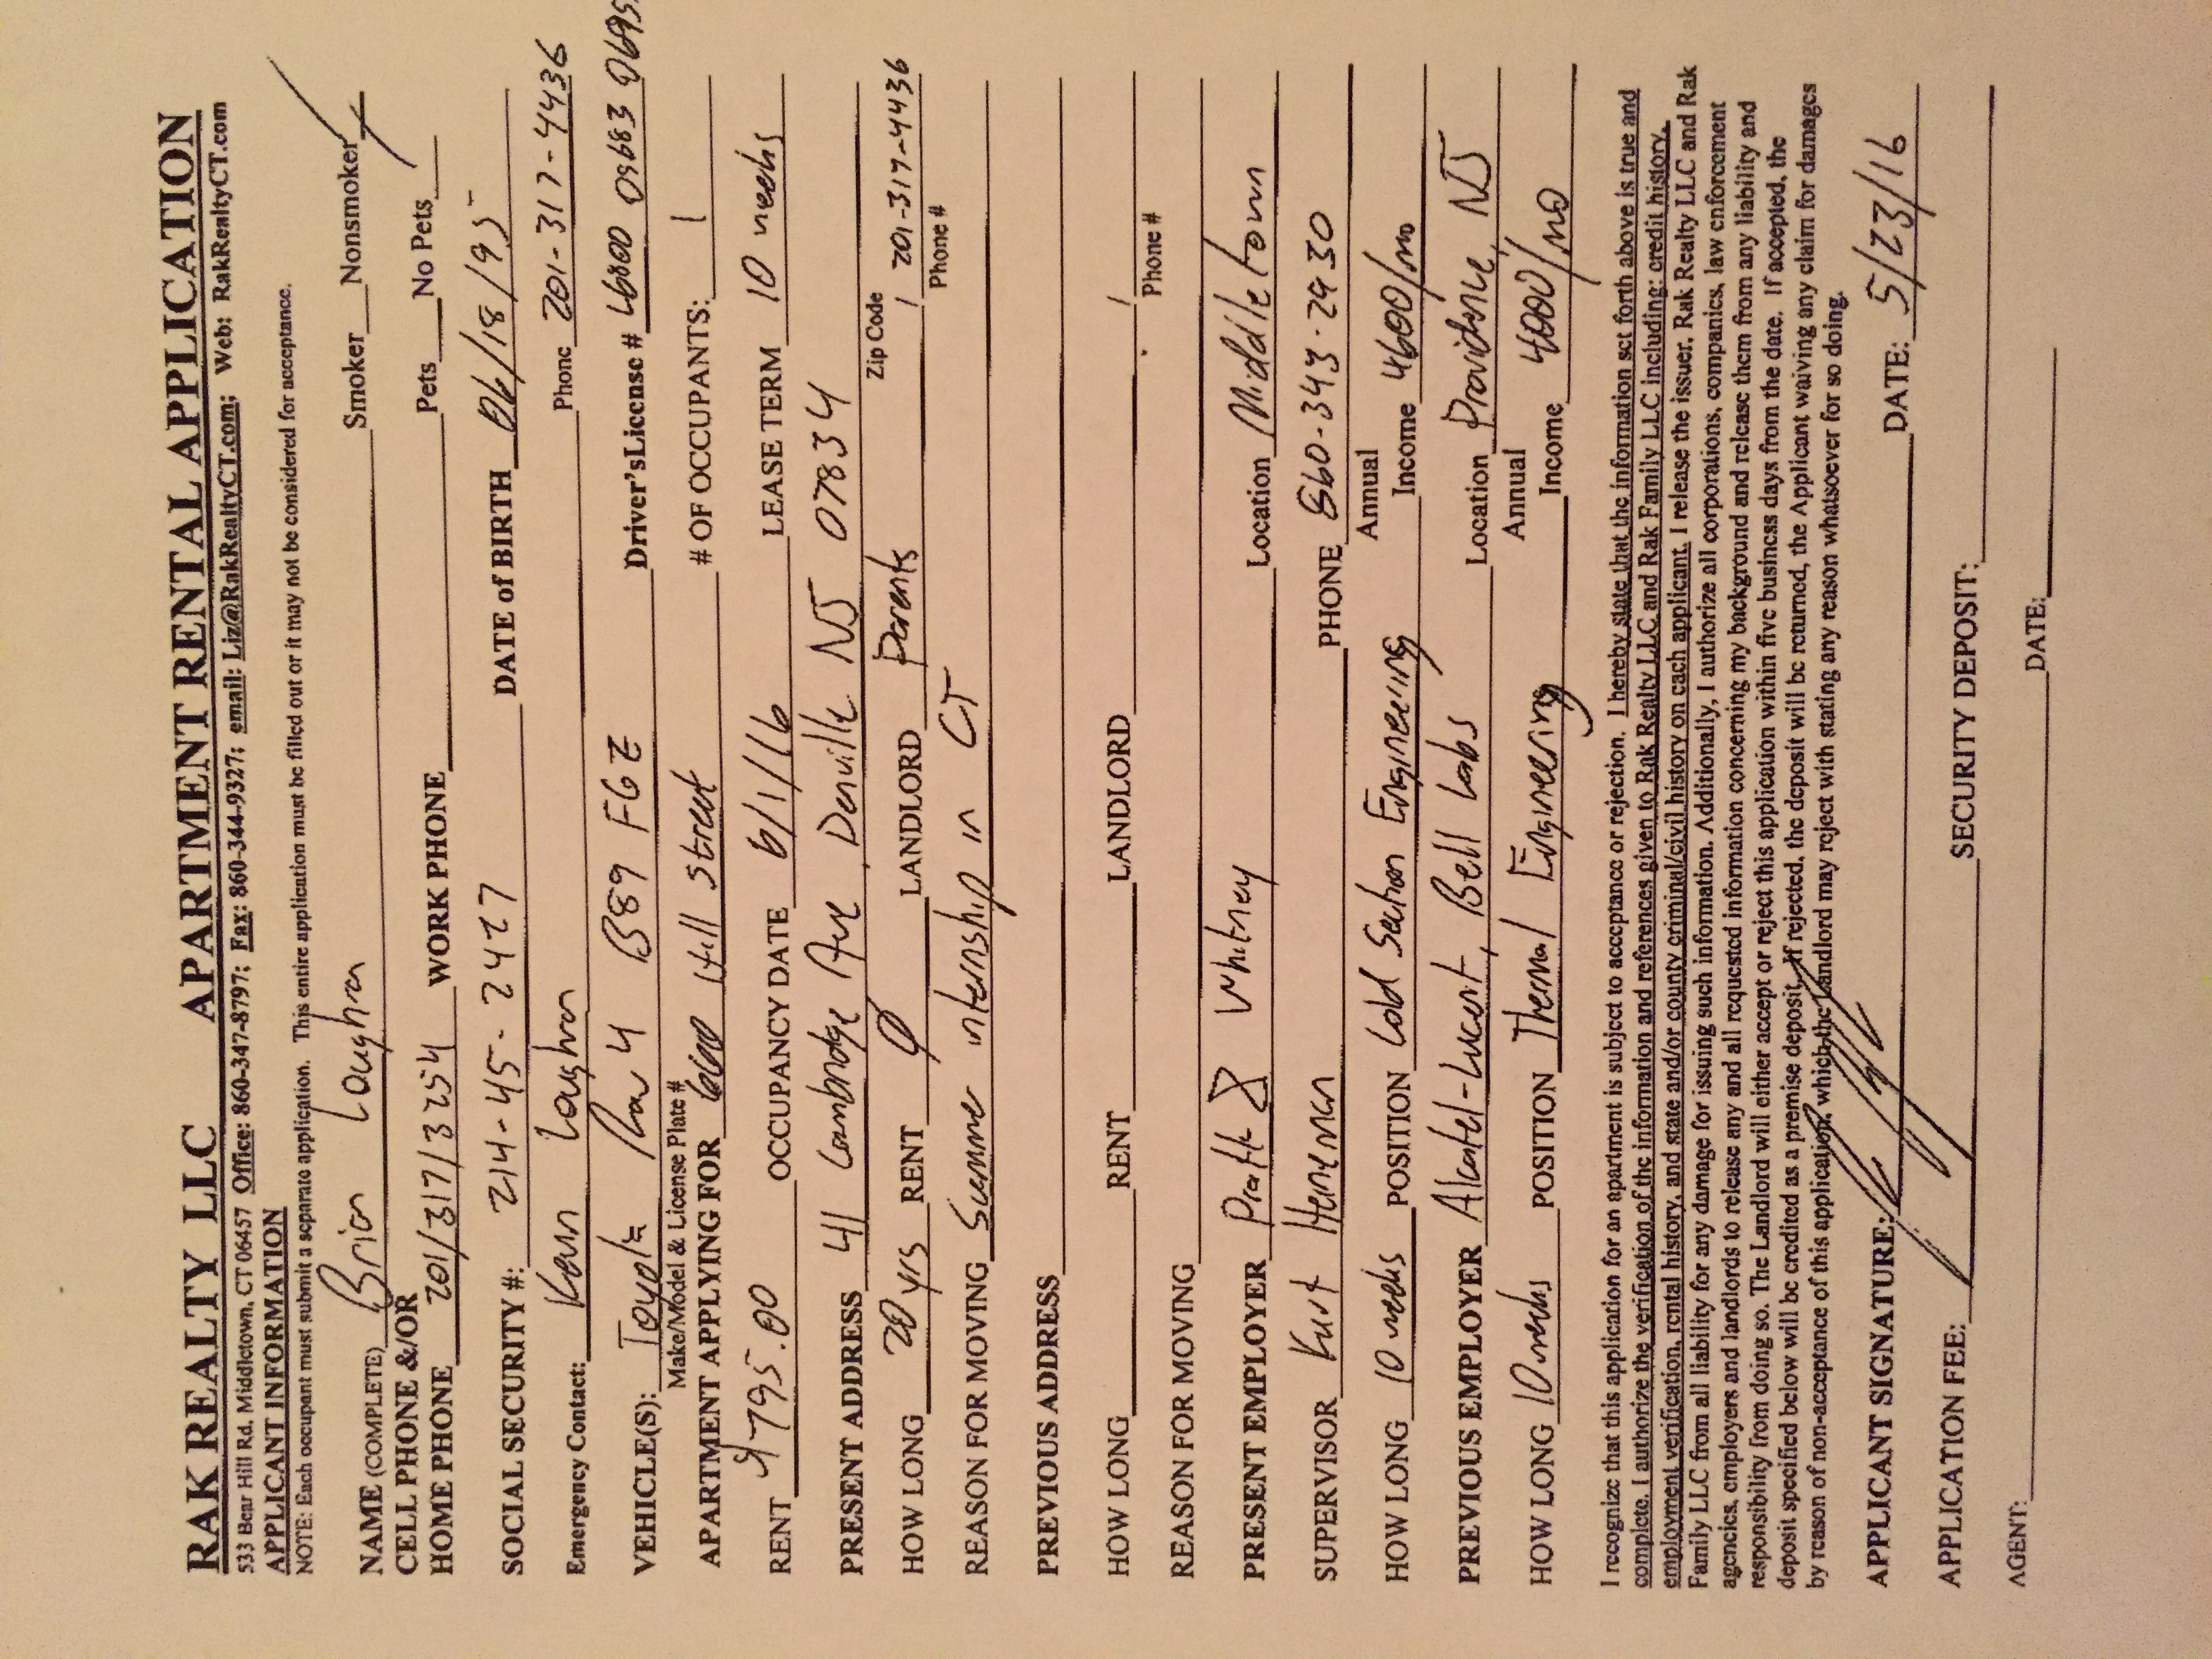 RAK REALTY LLC APARTMENT RENTAL APPLICATION
533 Bear Hill Rd, Middletown, CT 06457 Office: 860-347-8797; Fax: 860-344-9327; email: Liz@RakRealtyCT.com; Web: RakRealtyCT.com
APPLICANT INFORMATION
NOTE: Each occupant must submit a separate application. This entire application must be filled out or it may not be considered for acceptance.
NAME (COMPLETE) Brian Loughran Smoker Nonsmoker
CELL PHONE &/OR
HOME PHONE 201/317/3254 WORK PHONE Pets No Pets
SOCIAL SECURITY #: 214-45-2427 DATE of BIRTH 06/18/95
Emergency Contact: Kevin Loughran Phone 201-317-4436
VEHICLE(S): Toyota Rav 4 B89 FGE Driver's License # L6800 09683 0695
Make/Model & License Plate #
APARTMENT APPLYING FOR 660 Hill Street # OF OCCUPANTS: 1
RENT $795.00 OCCUPANCY DATE 6/1/16 LEASE TERM 10 weeks
PRESENT ADDRESS 41 Cambridge Ave, Denville NJ 07834
Zip Code
HOW LONG 20 yrs RENT Ø LANDLORD Parents / 201-317-4436
Phone #
REASON FOR MOVING Summer internship in CT
PREVIOUS ADDRESS
HOW LONG RENT LANDLORD /
Phone #
REASON FOR MOVING
PRESENT EMPLOYER Pratt & Whitney Location Middletown
SUPERVISOR Kurt Heineman PHONE 860-343-2930
Annual
HOW LONG 10 weeks POSITION Cold Section Engineering Income 4600/mo
PREVIOUS EMPLOYER Alcatel-Lucent, Bell Labs Location Providence, NJ
Annual
HOW LONG 10 weeks POSITION Thermal Engineering Income 4000/mo
I recognize that this application for an apartment is subject to acceptance or rejection. I hereby state that the information set forth above is true and
complete. I authorize the verification of the information and references given to Rak Realty LLC and Rak Family LLC including: credit history,
employment verification, rental history, and state and/or county criminal/civil history on each applicant. I release the issuer, Rak Realty LLC and Rak
Family LLC from all liability for any damage for issuing such information. Additionally, I authorize all corporations, companies, law enforcement
agencies, employers and landlords to release any and all requested information concerning my background and release them from any liability and
responsibility from doing so. The Landlord will either accept or reject this application within five business days from the date. If accepted, the
deposit specified below will be credited as a premise deposit. If rejected, the deposit will be returned, the Applicant waiving any claim for damages
by reason of non-acceptance of this application, which the Landlord may reject with stating any reason whatsoever for so doing.
APPLICANT SIGNATURE: DATE: 5/23/16
APPLICATION FEE: SECURITY DEPOSIT:
AGENT: DATE: